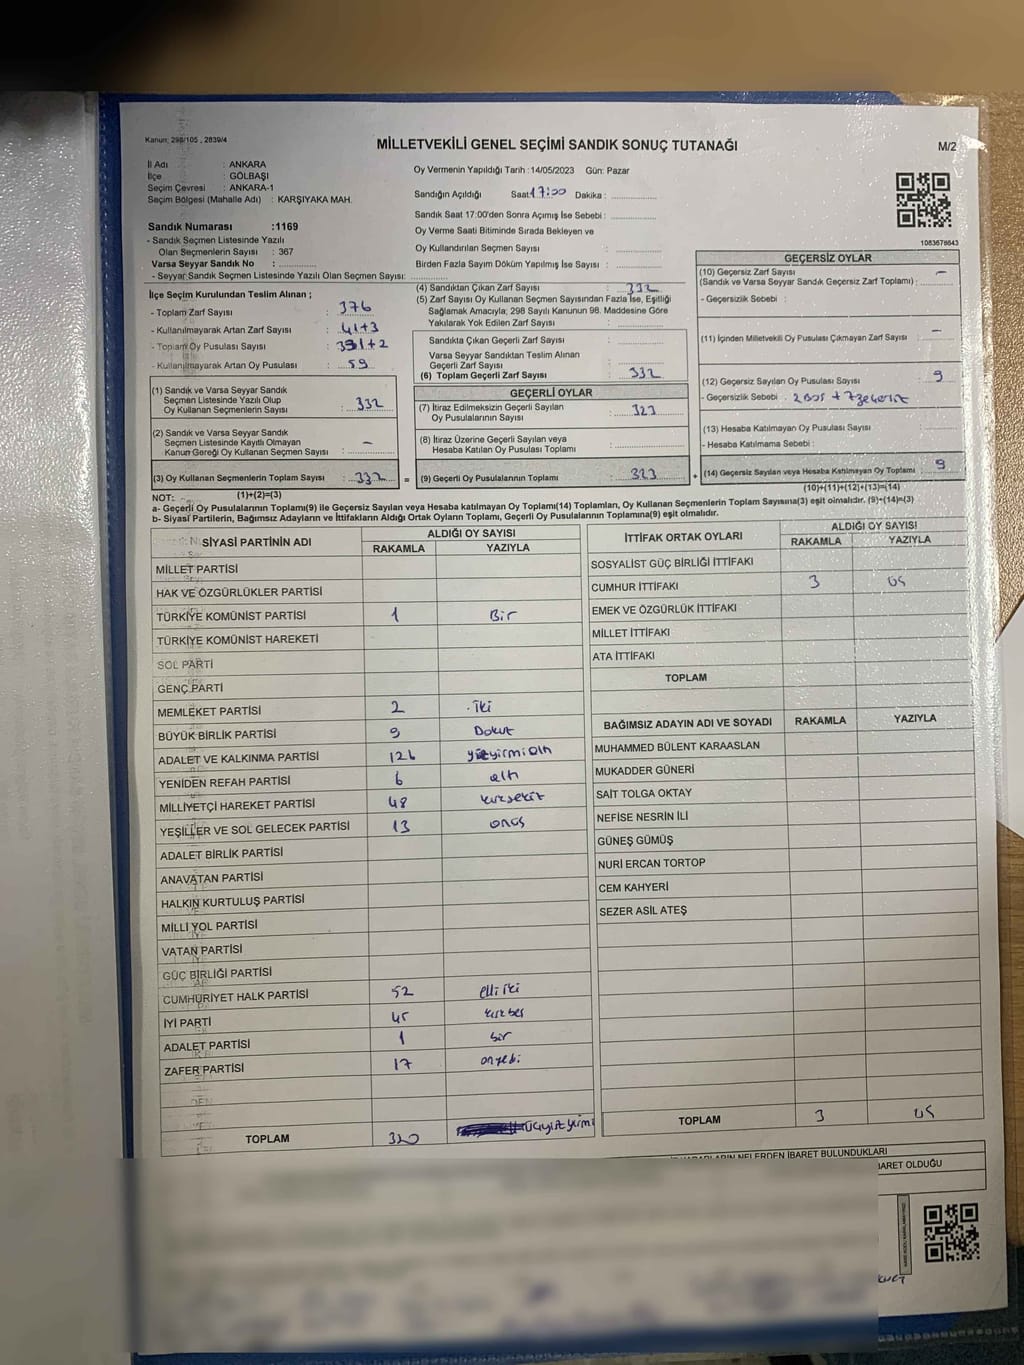 Kanun; 298/105 , 2839/4
MİLLETVEKİLİ GENEL SEÇİMİ SANDIK SONUÇ TUTANAĞI
M/2
İl Adı : ANKARA
İlçe : GÖLBAŞI
Seçim Çevresi : ANKARA-1
Seçim Bölgesi (Mahalle Adı) : KARŞIYAKA MAH.
Sandık Numarası :1169
- Sandık Seçmen Listesinde Yazılı
Olan Seçmenlerin Sayısı : 367
Varsa Seyyar Sandık No :
- Seyyar Sandık Seçmen Listesinde Yazılı Olan Seçmen Sayısı:
Oy Vermenin Yapıldığı Tarih :14/05/2023 Gün: Pazar
Sandığın Açıldığı Saat:17:00 Dakika :
Sandık Saat 17:00'den Sonra Açımış İse Sebebi :
Oy Verme Saati Bitiminde Sırada Bekleyen ve
Oy Kullandırılan Seçmen Sayısı :
Birden Fazla Sayım Döküm Yapılmış İse Sayısı :
1083678643
İlçe Seçim Kurulundan Teslim Alınan ;
- Toplam Zarf Sayısı : 376
- Kullanılmayarak Artan Zarf Sayısı : 41+3
- Toplam Oy Pusulası Sayısı : 391+2
- Kullanılmayarak Artan Oy Pusulası : 59
(1) Sandık ve Varsa Seyyar Sandık
Seçmen Listesinde Yazılı Olup
Oy Kullanan Seçmenlerin Sayısı : 332
(2) Sandık ve Varsa Seyyar Sandık
Seçmen Listesinde Kayıtlı Olmayan
Kanun Gereği Oy Kullanan Seçmen Sayısı : -
(3) Oy Kullanan Seçmenlerin Toplam Sayısı : 332 =
(1)+(2)=(3)
(4) Sandıktan Çıkan Zarf Sayısı : 332
(5) Zarf Sayısı Oy Kullanan Seçmen Sayısından Fazla İse, Eşitliği
Sağlamak Amacıyla; 298 Sayılı Kanunun 98. Maddesine Göre
Yakılarak Yok Edilen Zarf Sayısı :
Sandıkta Çıkan Geçerli Zarf Sayısı :
Varsa Seyyar Sandıktan Teslim Alınan
Geçerli Zarf Sayısı :
(6) Toplam Geçerli Zarf Sayısı : 332
GEÇERLİ OYLAR
(7) İtiraz Edilmeksizin Geçerli Sayılan
Oy Pusulalarının Sayısı : 323
(8) İtiraz Üzerine Geçerli Sayılan veya
Hesaba Katılan Oy Pusulası Toplamı :
(9) Geçerli Oy Pusulalarının Toplamı : 323 +
GEÇERSİZ OYLAR
(10) Geçersiz Zarf Sayısı
(Sandık ve Varsa Seyyar Sandık Geçersiz Zarf Toplamı) : -
- Geçersizlik Sebebi :
(11) İçinden Milletvekili Oy Pusulası Çıkmayan Zarf Sayısı -
(12) Geçersiz Sayılan Oy Pusulası Sayısı : 9
- Geçersizlik Sebebi : 2 BOŞ + 7
(13) Hesaba Katılmayan Oy Pusulası Sayısı :
- Hesaba Katılmama Sebebi :
(14) Geçersiz Sayılan veya Hesaba Katılmayan Oy Toplamı : 9
(10)+(11)+(12)+(13)=(14)
NOT:
a- Geçerli Oy Pusulalarının Toplamı(9) ile Geçersiz Sayılan veya Hesaba katılmayan Oy Toplamı(14) Toplamları, Oy Kullanan Seçmenlerin Toplam Sayısına(3) eşit olmalıdır. (9)+(14)=(3)
b- Siyasi Partilerin, Bağımsız Adayların ve İttifakların Aldığı Ortak Oyların Toplamı, Geçerli Oy Pusulalarının Toplamına(9) eşit olmalıdır.
SİYASİ PARTİNİN ADI ALDIĞI OY SAYISI
RAKAMLA YAZIYLA
MİLLET PARTİSİ
HAK VE ÖZGÜRLÜKLER PARTİSİ
TÜRKİYE KOMÜNİST PARTİSİ 1 Bir
TÜRKİYE KOMÜNİST HAREKETİ
SOL PARTİ
GENÇ PARTİ
MEMLEKET PARTİSİ 2 iki
BÜYÜK BİRLİK PARTİSİ 9 Dokuz
ADALET VE KALKINMA PARTİSİ 126 yüzyirmialtı
YENİDEN REFAH PARTİSİ 6 altı
MİLLİYETÇİ HAREKET PARTİSİ 48 kırksekiz
YEŞİLLER VE SOL GELECEK PARTİSİ 13 onüç
ADALET BİRLİK PARTİSİ
ANAVATAN PARTİSİ
HALKIN KURTULUŞ PARTİSİ
MİLLİ YOL PARTİSİ
VATAN PARTİSİ
GÜÇ BİRLİĞİ PARTİSİ
CUMHURİYET HALK PARTİSİ 52 elli iki
İYİ PARTİ 45 kırkbeş
ADALET PARTİSİ 1 bir
ZAFER PARTİSİ 17 onyedi
TOPLAM 320 üçyüzyirmi
İTTİFAK ORTAK OYLARI ALDIĞI OY SAYISI
RAKAMLA YAZIYLA
SOSYALİST GÜÇ BİRLİĞİ İTTİFAKI
CUMHUR İTTİFAKI 3 üç
EMEK VE ÖZGÜRLÜK İTTİFAKI
MİLLET İTTİFAKI
ATA İTTİFAKI
TOPLAM
BAĞIMSIZ ADAYIN ADI VE SOYADI RAKAMLA YAZIYLA
MUHAMMED BÜLENT KARAASLAN
MUKADDER GÜNERİ
SAİT TOLGA OKTAY
NEFİSE NESRİN İLİ
GÜNEŞ GÜMÜŞ
NURİ ERCAN TORTOP
CEM KAHYERİ
SEZER ASİL ATEŞ
TOPLAM 3 üç
NELERDEN İBARET BULUNDUKLARI
İBARET OLDUĞU